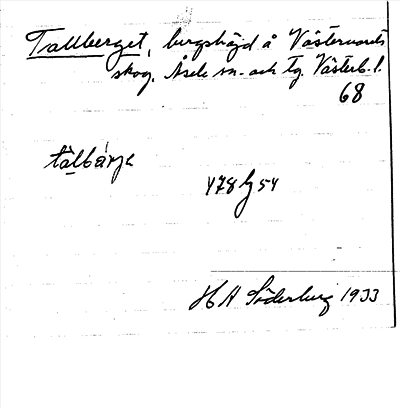 Tallberget, bergshöjd å Västernorets
skog. Åsele sn. och tg. Västerb. l.
68
tálbárje
478 g 54
H A Söderberg 1933